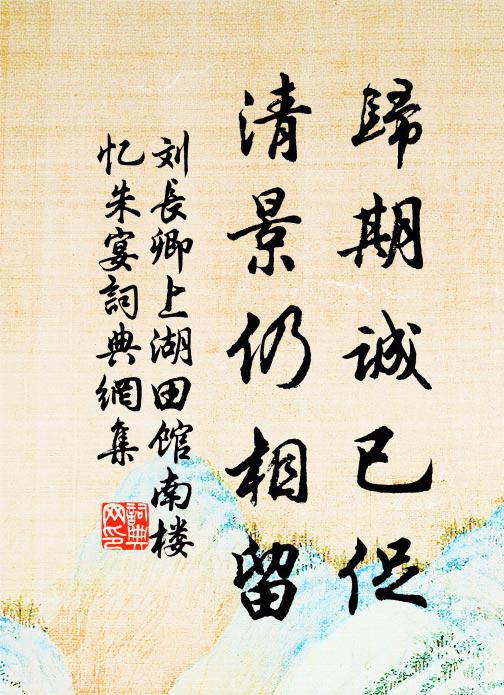 歸期誠已促
清景仍相留
刘長卿上湖田馆南楼
忆朱宴詞典網集
詞典网印